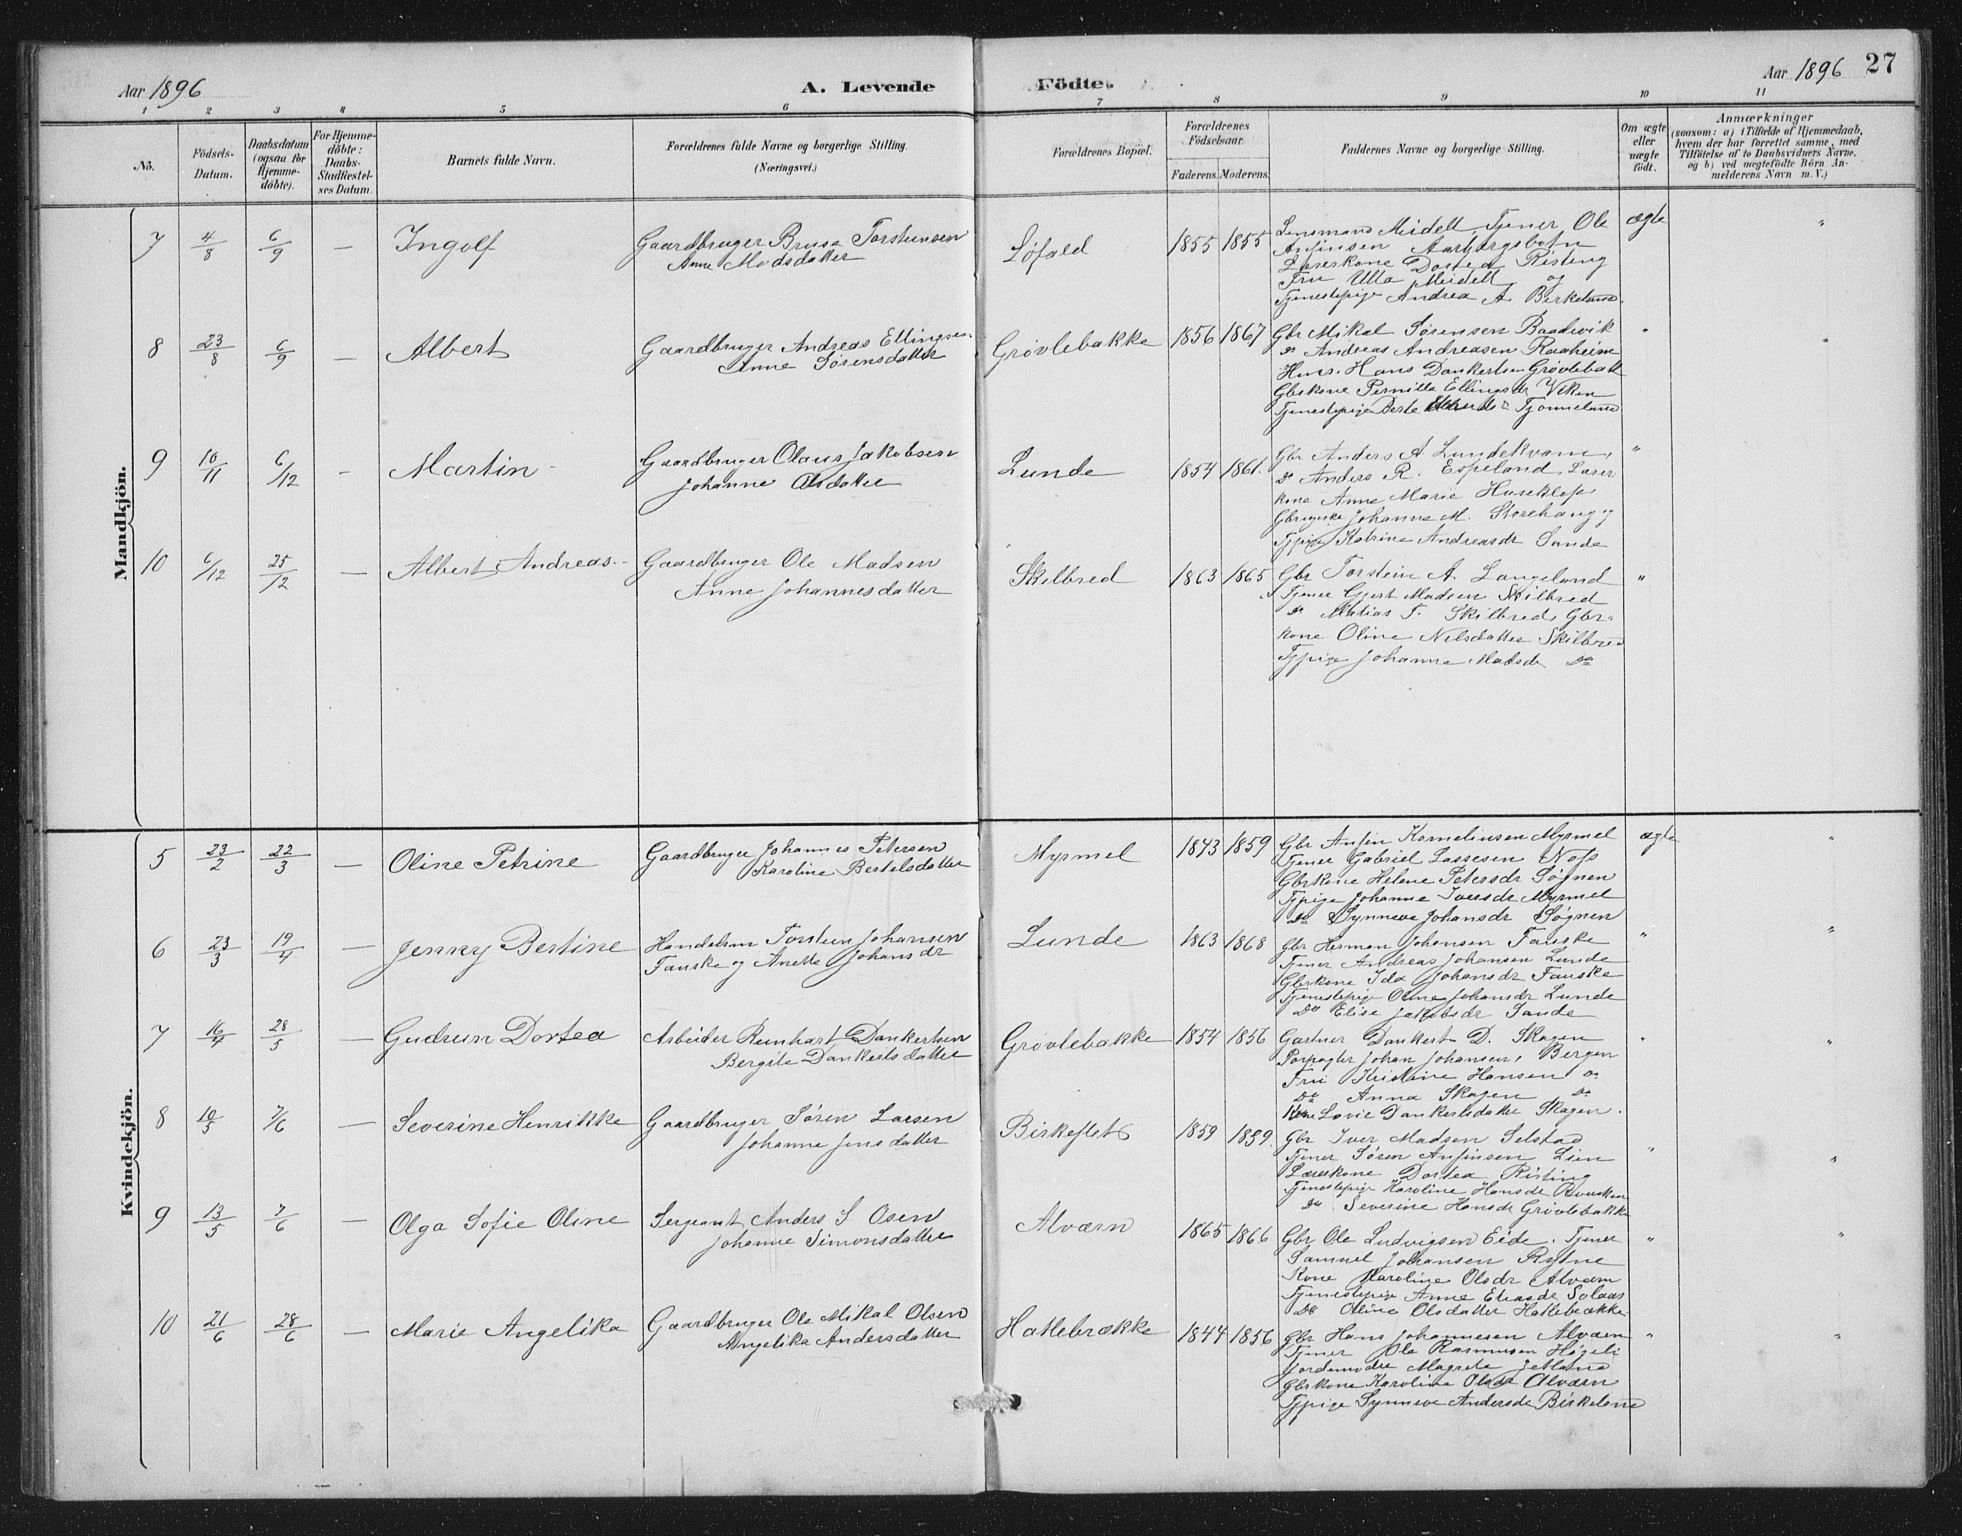 Aar 1896
A. Levende
Födte.
Aar 1896
27
1 2 3 4 5 6 7 8 9 10 11
No.
Födsels-
Datum.
Daabsdatum
(ogsaa for
Hjemme-
döbte).
For Hjemme-
döbte:
Daabs-
Stadfæstel-
ses Datum.
Barnets fulde Navn.
Forældrenes fulde Navne og borgerlige Stilling.
(Næringsvei.)
Forældrenes Bopæl.
Forældrenes
Födselsaar.
Faderens. Moderens.
Faddernes Navne og borgerlige Stilling.
Om ægte
eller
uægte
födt.
Anmærkninger
(saasom: a) i Tilfælde af Hjemmedaab,
hvem der har forrettet samme, med
Tilföielse af to Daabsvidners Navne,
og b) ved uægtefödte Börn An-
melderens Navn m. V.)
Mandkjön.
7 4/8 6/9 — Ingolf
Gaardbruger Bruse Torsteinsen
Anne Madsdatter
Løfald 1855 1855
Lensmand Meidell, Tjener Ole
Anfinsen Aarbergsbotn
Lærerkone Dortea Risting
Fru Ulla Meidell og
Tjenestepige Andrea A Birkeland.
ægte "
8 23/8 6/9 — Albert
Gaardbruger Andreas Ellingsen
Anne Sørensdatter
Grøvlebakke 1856 1867
Gbr Mikal Sørensen Baadsvik
Do Andreas Andreasen Raaheim
Huus. Hans Dankertsen Grøvlebak
Gbrkone Pernille Ellingsdr Viken
Tjenestepige Berte Tjønneland
" "
9 10/11 6/12 — Martin
Gaardbruger Olaus Jakobsen
Johanne Olsdatter
Lunde 1854 1861.
Gbr Anders A Lundekvam,
Do Anders R. Espeland, Lærer
kone Anne Marie Huseklep
Johanne M. Storehaug
Tjpige Katrine Andreasdr Sande
"
10 6/12 25/12 — Albert Andreas
Gaardbruger Ole Madsen
Anne Johannesdatter
Skilbred 1863 1865
Gbr Torstein A. Langeland
Tjener Gjert Madsen Skilbred
Do Matias T. Skilbred, Gbr.
kone Oline Nilsdatter Skilbred
Tjpige Johanne Madsdr Do
" "
Kvindekjön.
5 23/2 22/3 — Oline Petrine
Gaardbruger Johannes Petersen
Karoline Bertelsdatter
Myrmel 1843 1859
Gbr Anfin Korneliusen Myrmel
Tjener Gabriel Lassesen Nofs
Gbrkone Helene Petersdr Søgnen
Tjpige Johanne Iversdr Myrmel
Do Synneve Johansdr Søgnen
ægte "
6 23/3 19/4 — Jenny Bertine
Handelsm Torstein Johansen
Fauske og Anette Johansdr
Lunde 1863 1868
Gbr Herman Johansen Fauske
Tjener Andreas Johansen Lunde
Gbrkone Ida Johansdr Fauske
Tjenestepige Oline Johansdr Lunde
Do Elise Jakobsdr Sande
" "
7 16/4 28/5 — Gudrun Dortea
Arbeider Reinhart Dankertsen
Bergite Dankertsdatter
Grøvlebakke 1854 1856
Gartner Dankert D. Skagen
Johan Johansen, Bergen
Fru Kristine Hansen Do
Do Anna Skagen Do
Kone Lovie Dankertsdatter Skagen.
" "
8 10/5 7/6 — Severine Henrikke
Gaardbruger Søren Larsen
Johanne Jensdatter
Birkeflet 1859 1859.
Gbr Iver Madsen Selstad
Tjener Søren Anfinsen Lien
Lærerkone Dortea Risting
Tjenestepige Karoline Hansdr
Do Severine Hansdr Grøvlebakke
" "
9 13/5 7/6 — Olga Sofie Oline
Sergeant Anders S Osen
Johanne Simonsdatter
Alværn 1865 1866
Gbr Ole Ludvigsen Eide. Tjener
Samuel Johansen Rytne
Kone Karoline Olsdr Alværn
Tjenestepige Anne Eliasdr Solaas
Do Oline Olsdatter Hatlebrække
" "
10 21/6 28/6 — Marie Angelika
Gaardbruger Ole Mikal Olsen
Angelika Andersdatter
Hatlebrække 1844 1856
Gbr Hans Johannesen Alværn
Tjener Ole Rasmusen Høgeli
Jordemoder Magrete Jetland
Gbrkone Karoline Olsdr Alværn
Tjpige Synneve Andersdr Birkeland
" "